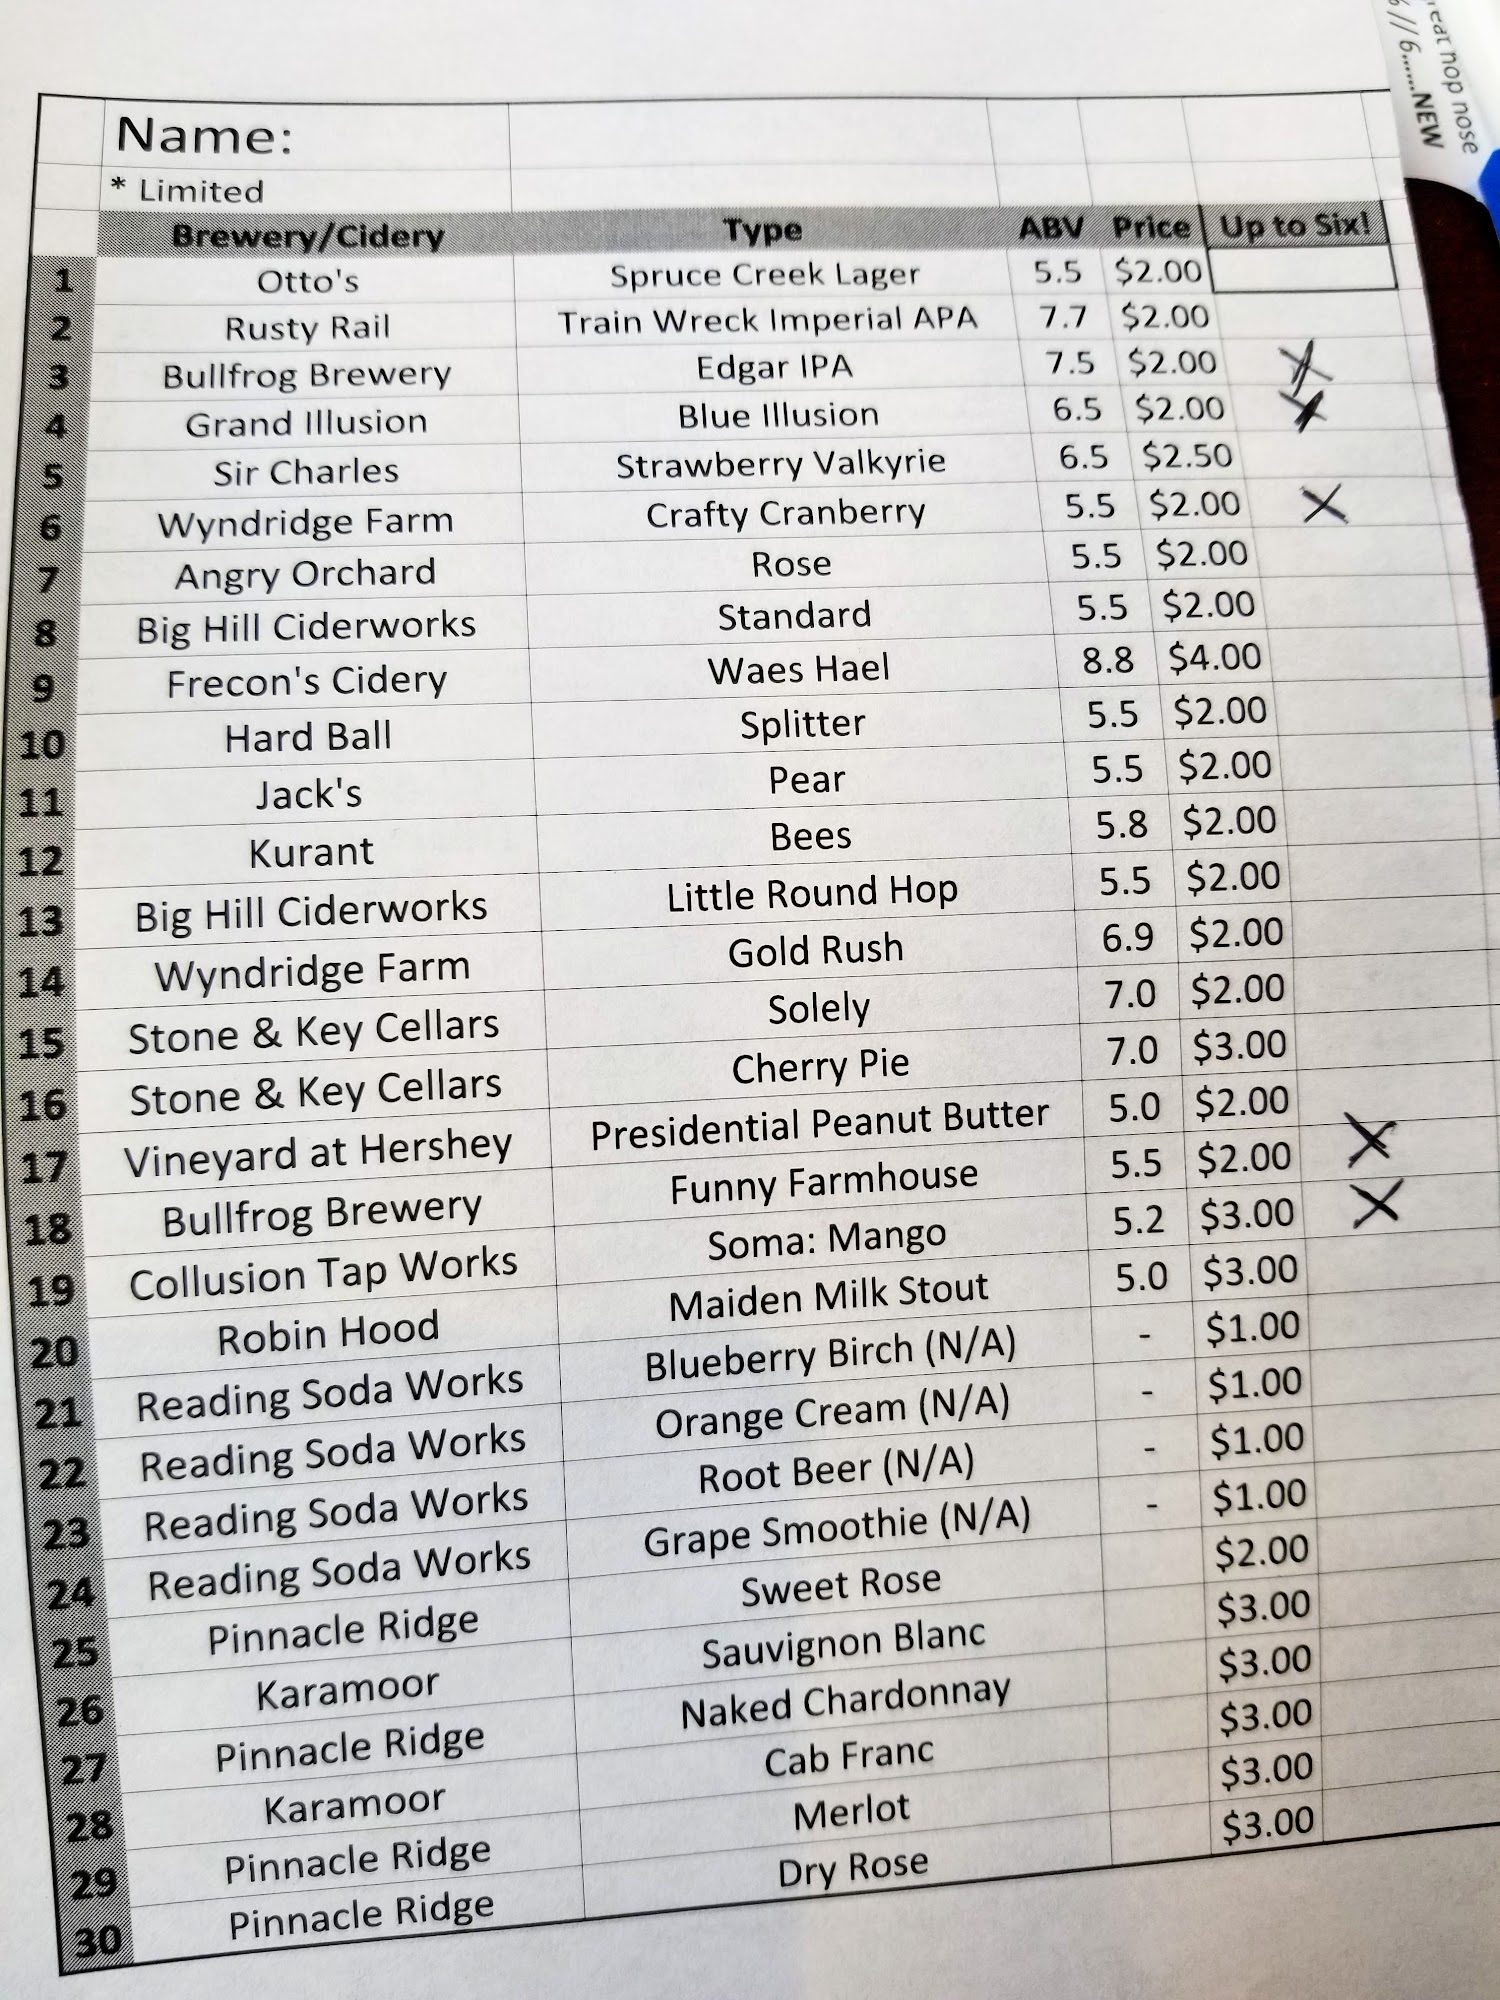 eat hop nose
6 // 6......NEW
Name:
* Limited
Brewery/Cidery Type ABV Price Up to Six!
1 Otto's Spruce Creek Lager 5.5 $2.00
2 Rusty Rail Train Wreck Imperial APA 7.7 $2.00
3 Bullfrog Brewery Edgar IPA 7.5 $2.00 X
4 Grand Illusion Blue Illusion 6.5 $2.00 X
5 Sir Charles Strawberry Valkyrie 6.5 $2.50
6 Wyndridge Farm Crafty Cranberry 5.5 $2.00 X
7 Angry Orchard Rose 5.5 $2.00
8 Big Hill Ciderworks Standard 5.5 $2.00
9 Frecon's Cidery Waes Hael 8.8 $4.00
10 Hard Ball Splitter 5.5 $2.00
11 Jack's Pear 5.5 $2.00
12 Kurant Bees 5.8 $2.00
13 Big Hill Ciderworks Little Round Hop 5.5 $2.00
14 Wyndridge Farm Gold Rush 6.9 $2.00
15 Stone & Key Cellars Solely 7.0 $2.00
16 Stone & Key Cellars Cherry Pie 7.0 $3.00
17 Vineyard at Hershey Presidential Peanut Butter 5.0 $2.00
18 Bullfrog Brewery Funny Farmhouse 5.5 $2.00 X
19 Collusion Tap Works Soma: Mango 5.2 $3.00 X
20 Robin Hood Maiden Milk Stout 5.0 $3.00
21 Reading Soda Works Blueberry Birch (N/A) - $1.00
22 Reading Soda Works Orange Cream (N/A) - $1.00
23 Reading Soda Works Root Beer (N/A) - $1.00
24 Reading Soda Works Grape Smoothie (N/A) - $1.00
25 Pinnacle Ridge Sweet Rose $2.00
26 Karamoor Sauvignon Blanc $3.00
27 Pinnacle Ridge Naked Chardonnay $3.00
28 Karamoor Cab Franc $3.00
29 Pinnacle Ridge Merlot $3.00
30 Pinnacle Ridge Dry Rose $3.00